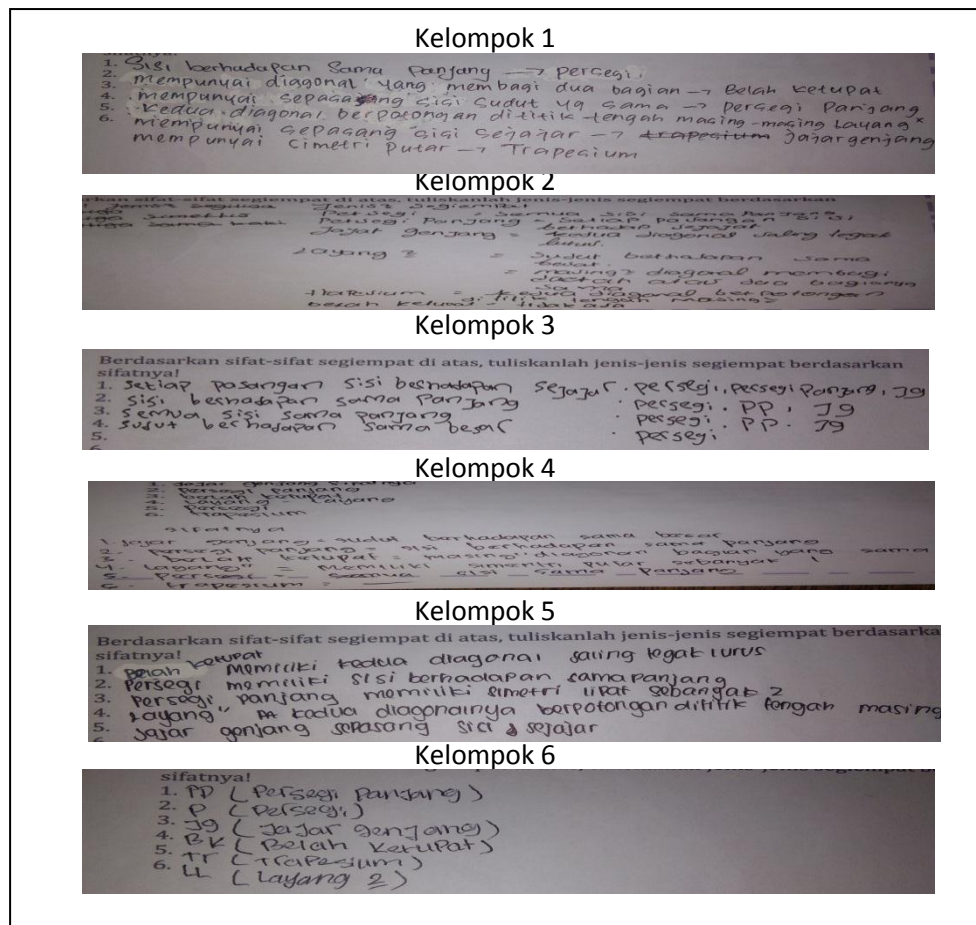 Kelompok 1
1. Sisi berhadapan sama panjang → persegi.
2. mempunyai diagonal yang membagi dua bagian → Belah ketupat
3. mempunyai sepasang sisi sudut yg sama → persegi panjang
4. Kedua diagonal berpotongan dititik tengah masing-masing Layang"
5. mempunyai sepasang sisi sejajar → trapesium Jajargenjang
6. mempunyai cimetri putar → Trapesium
Kelompok 2
sifat-sifat segiempat di atas, tuliskanlah jenis-jenis segiempat berdasarkan
Jenis² segiempat
Persegi = semua sisi sama panjang
Persegi Panjang = Setiap pasangan sisi
berhadap sejajar
Jajar genjang = kedua diagonal saling tegak
lurus.
Layang² = sudut berhadapan sama
besar.
= masing² diagonal membagi
daerah atas dua bagian
sama
trapesium = kedua diagonal berpotongan
di titik tengah masing²
belah ketupat = tidak ada
Kelompok 3
Berdasarkan sifat-sifat segiempat di atas, tuliskanlah jenis-jenis segiempat berdasarkan
sifatnya!
1. setiap pasangan sisi berhadapan sejajar. persegi, persegi panjang, Jg
2. sisi berhadapan sama panjang . persegi. PP, Jg
3. semua sisi sama panjang . persegi. PP. Jg
4. sudut berhadapan sama besar . persegi
5.
Kelompok 4
2. persegi panjang
3. belah ketupat
4. Layang - Layang
5. Persegi
6. trapesium
sifatnya
1. jajar genjang = sudut berhadapan sama besar
2. persegi panjang = sisi berhadapan sama panjang
3. belah ketupat = masing² diagonal bagian yang sama
4. Layang" = memiliki simetri putar sebanyak 1
5. Persegi = semua sisi sama panjang
6. trapesium =
Kelompok 5
Berdasarkan sifat-sifat segiempat di atas, tuliskanlah jenis-jenis segiempat berdasarka
sifatnya!
1. Belah ketupat memiliki kedua diagonal saling tegak lurus
2. Persegi memiliki sisi berhadapan sama panjang
3. Persegi panjang memiliki simetri lipat sebanyak 2
4. Layang" kedua diagonalnya berpotongan dititik tengah masing
5. Jajar genjang sepasang sisi sejajar
Kelompok 6
sifatnya!
1. PP (Persegi Panjang)
2. P (Persegi)
3. Jg (Jajar genjang)
4. BK (Belah Ketupat)
5. Tr (Trapesium)
6. LL (Layang 2)